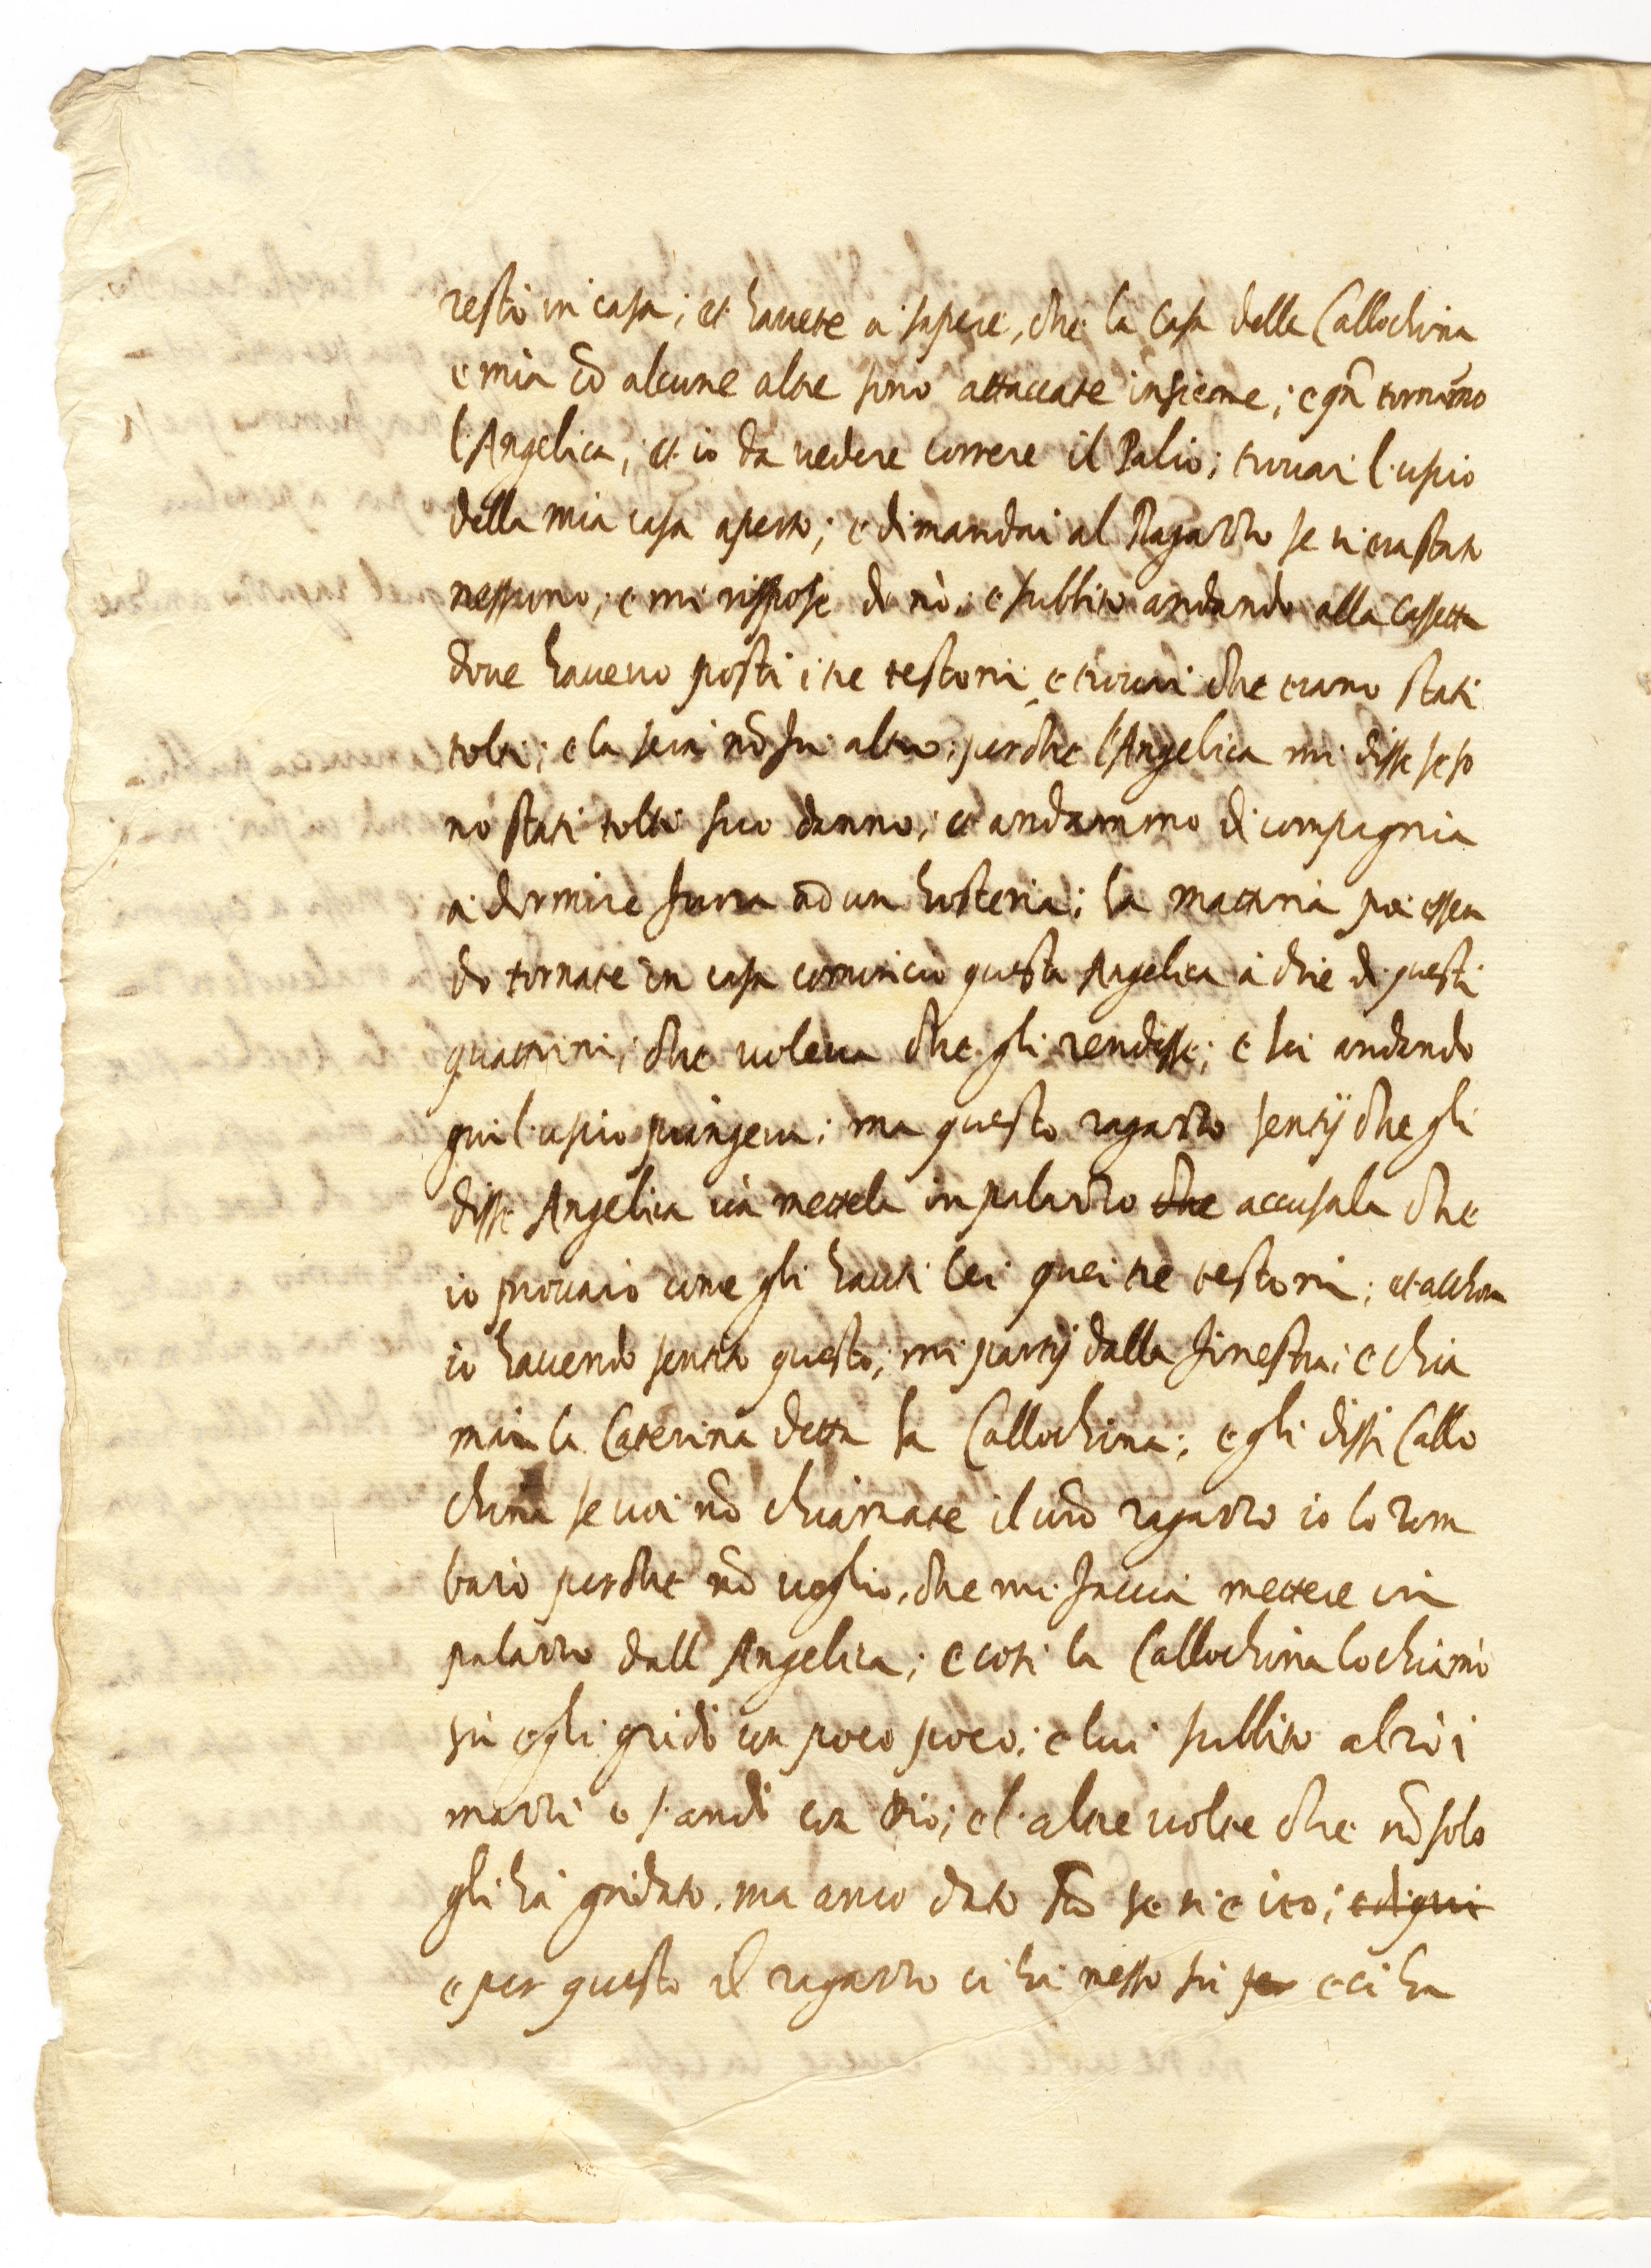 restò in casa; et havete a sapere, che la Casa della Callochina
e mia cõ alcune altre sono attaccate insieme; e qñ tornãmo
l'Angelica, et io da vedere correre il Palio; trovai l'uscio
della mia casa aperto; e dimandai al Ragazzo se vi era stato
nessuno; e mi rispose di nò; e subbito andando alla Cassetta
dove havevo posti i tre testoni, e trovai che erano stati
tolti; e la sera nõ fù altro; perche l'Angelica mi disse se so
nò stati tolti suo danno; et andammo di compagnia
à dormire fuora ad un hosteria; la mattina poi essen
do tornate in casa cominciò questa Angelica à dire di questi
quattrini, che voleva che gli rendesse; e lei andando
giù l'uscio piangeva; ma questo ragazzo sentij che gli
disse Angelica và mettela in palazzo che accusala che
io provarò come gli hauti lei quei tre testoni; et allhora
io havendo sentito questo; mi partij dalla finestra; e chia
mai la Caterina detta la Callochina; e gli dissi Callo
china se voi nõ chiamate il vrõ ragazzo io lo zom
barò perche nõ voglio, che mi faccia mettere in
palazzo dall'Angelica; e così la Callochina lo chiamò
sù e gli gridò un poco poco; e lui subbito alzò i
mazzi e s'andò con Dio; e l'altre volte che nõ solo
gli hà gridato, ma anco dato nõ se ni è ito; e di qui
e per questo il ragazzo ci hà messo sù per e ci ha